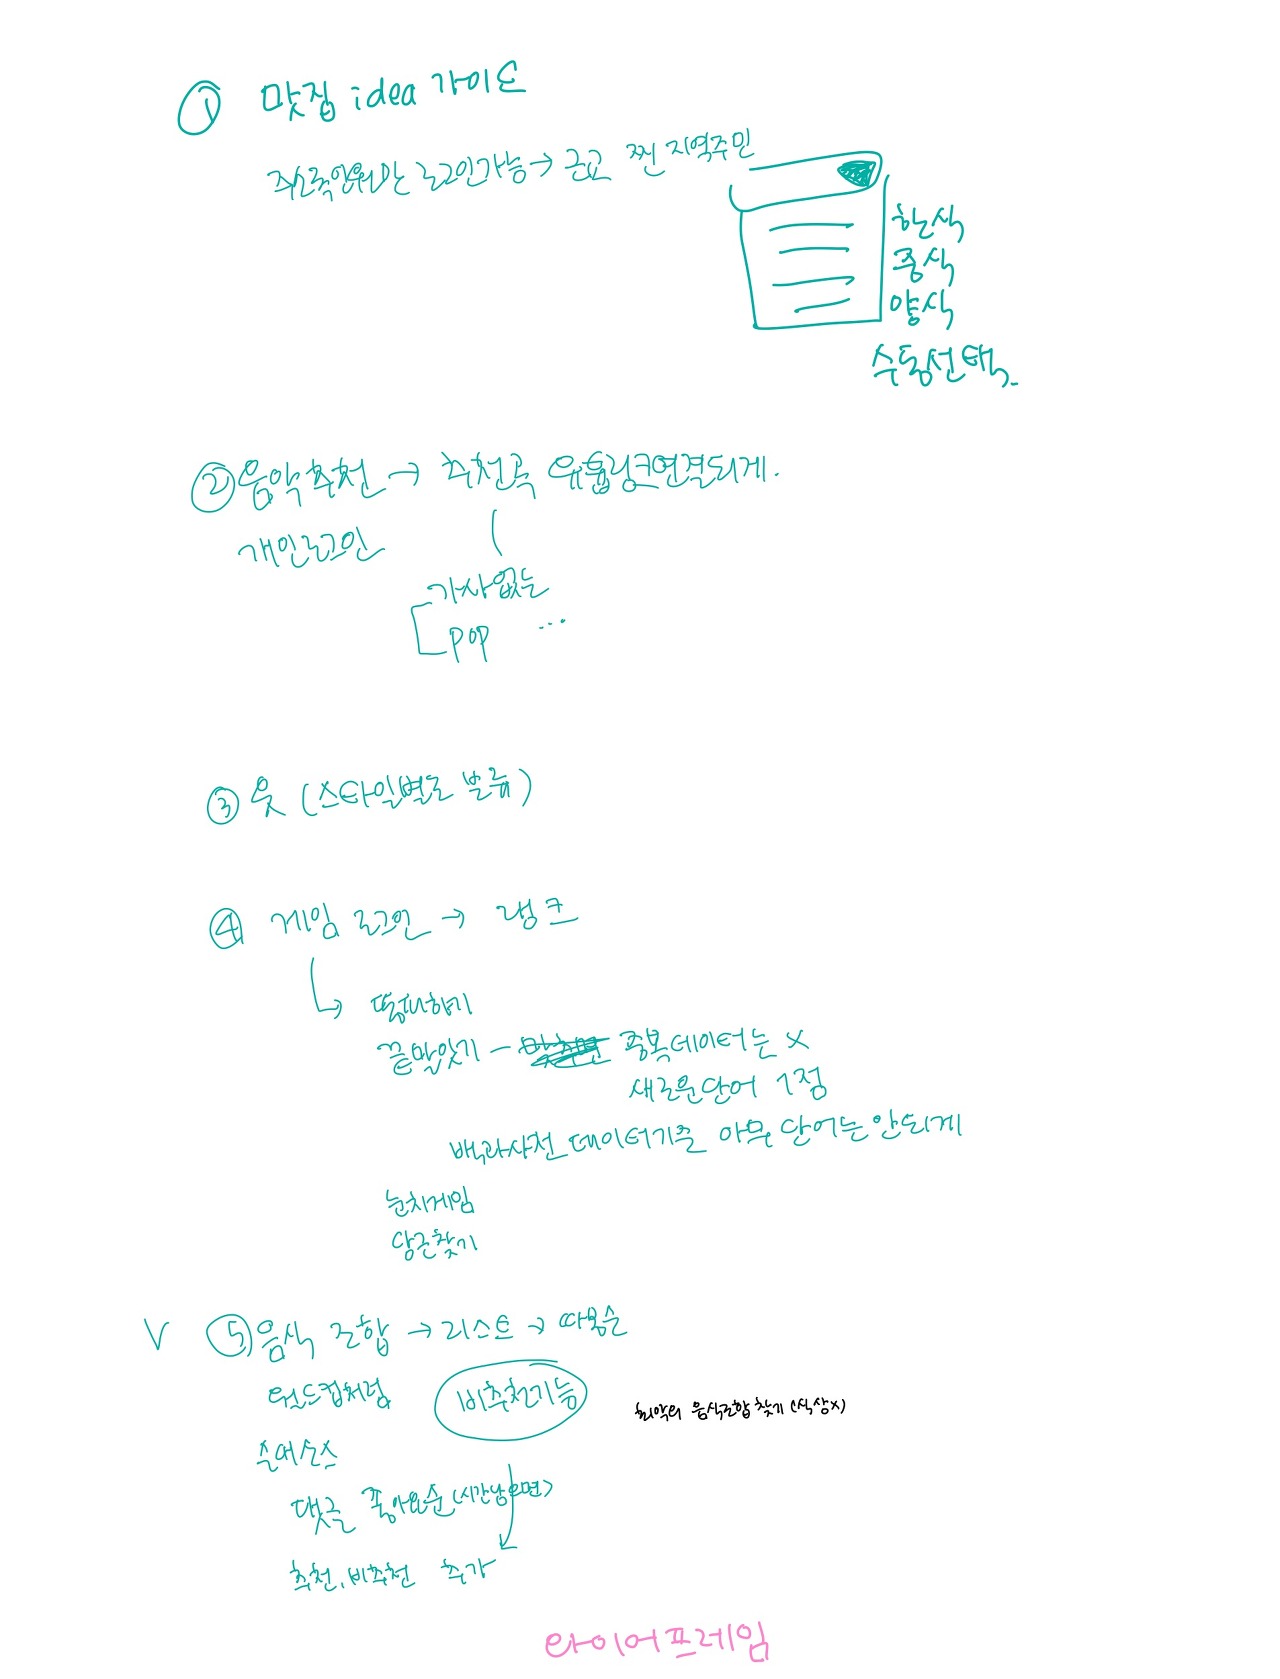 ① 맛집 idea 가이드
로그인가능 → 근교 찐 지역주민
한식
중식
양식
수동선택
② 음악추천 → 추천곡 유튭링크연결되게.
개인로그인
가사없는
pop ...
③ 옷 (스타일별로 분류)
④ 게임 로그인 → 랭크
끝말잇기 - 중복데이터는 x
새로운단어 1점
백과사전 데이터기준 아무 단어는 안되게
눈치게임
당근찾기
V ⑤ 음식 조합 → 리스트 → 따봉순
월드컵처럼 비추천기능
최악의 음식조합 찾기 (식상x)
댓글 좋아요순 (시간남으면)
추천, 비추천 추가
와이어프레임